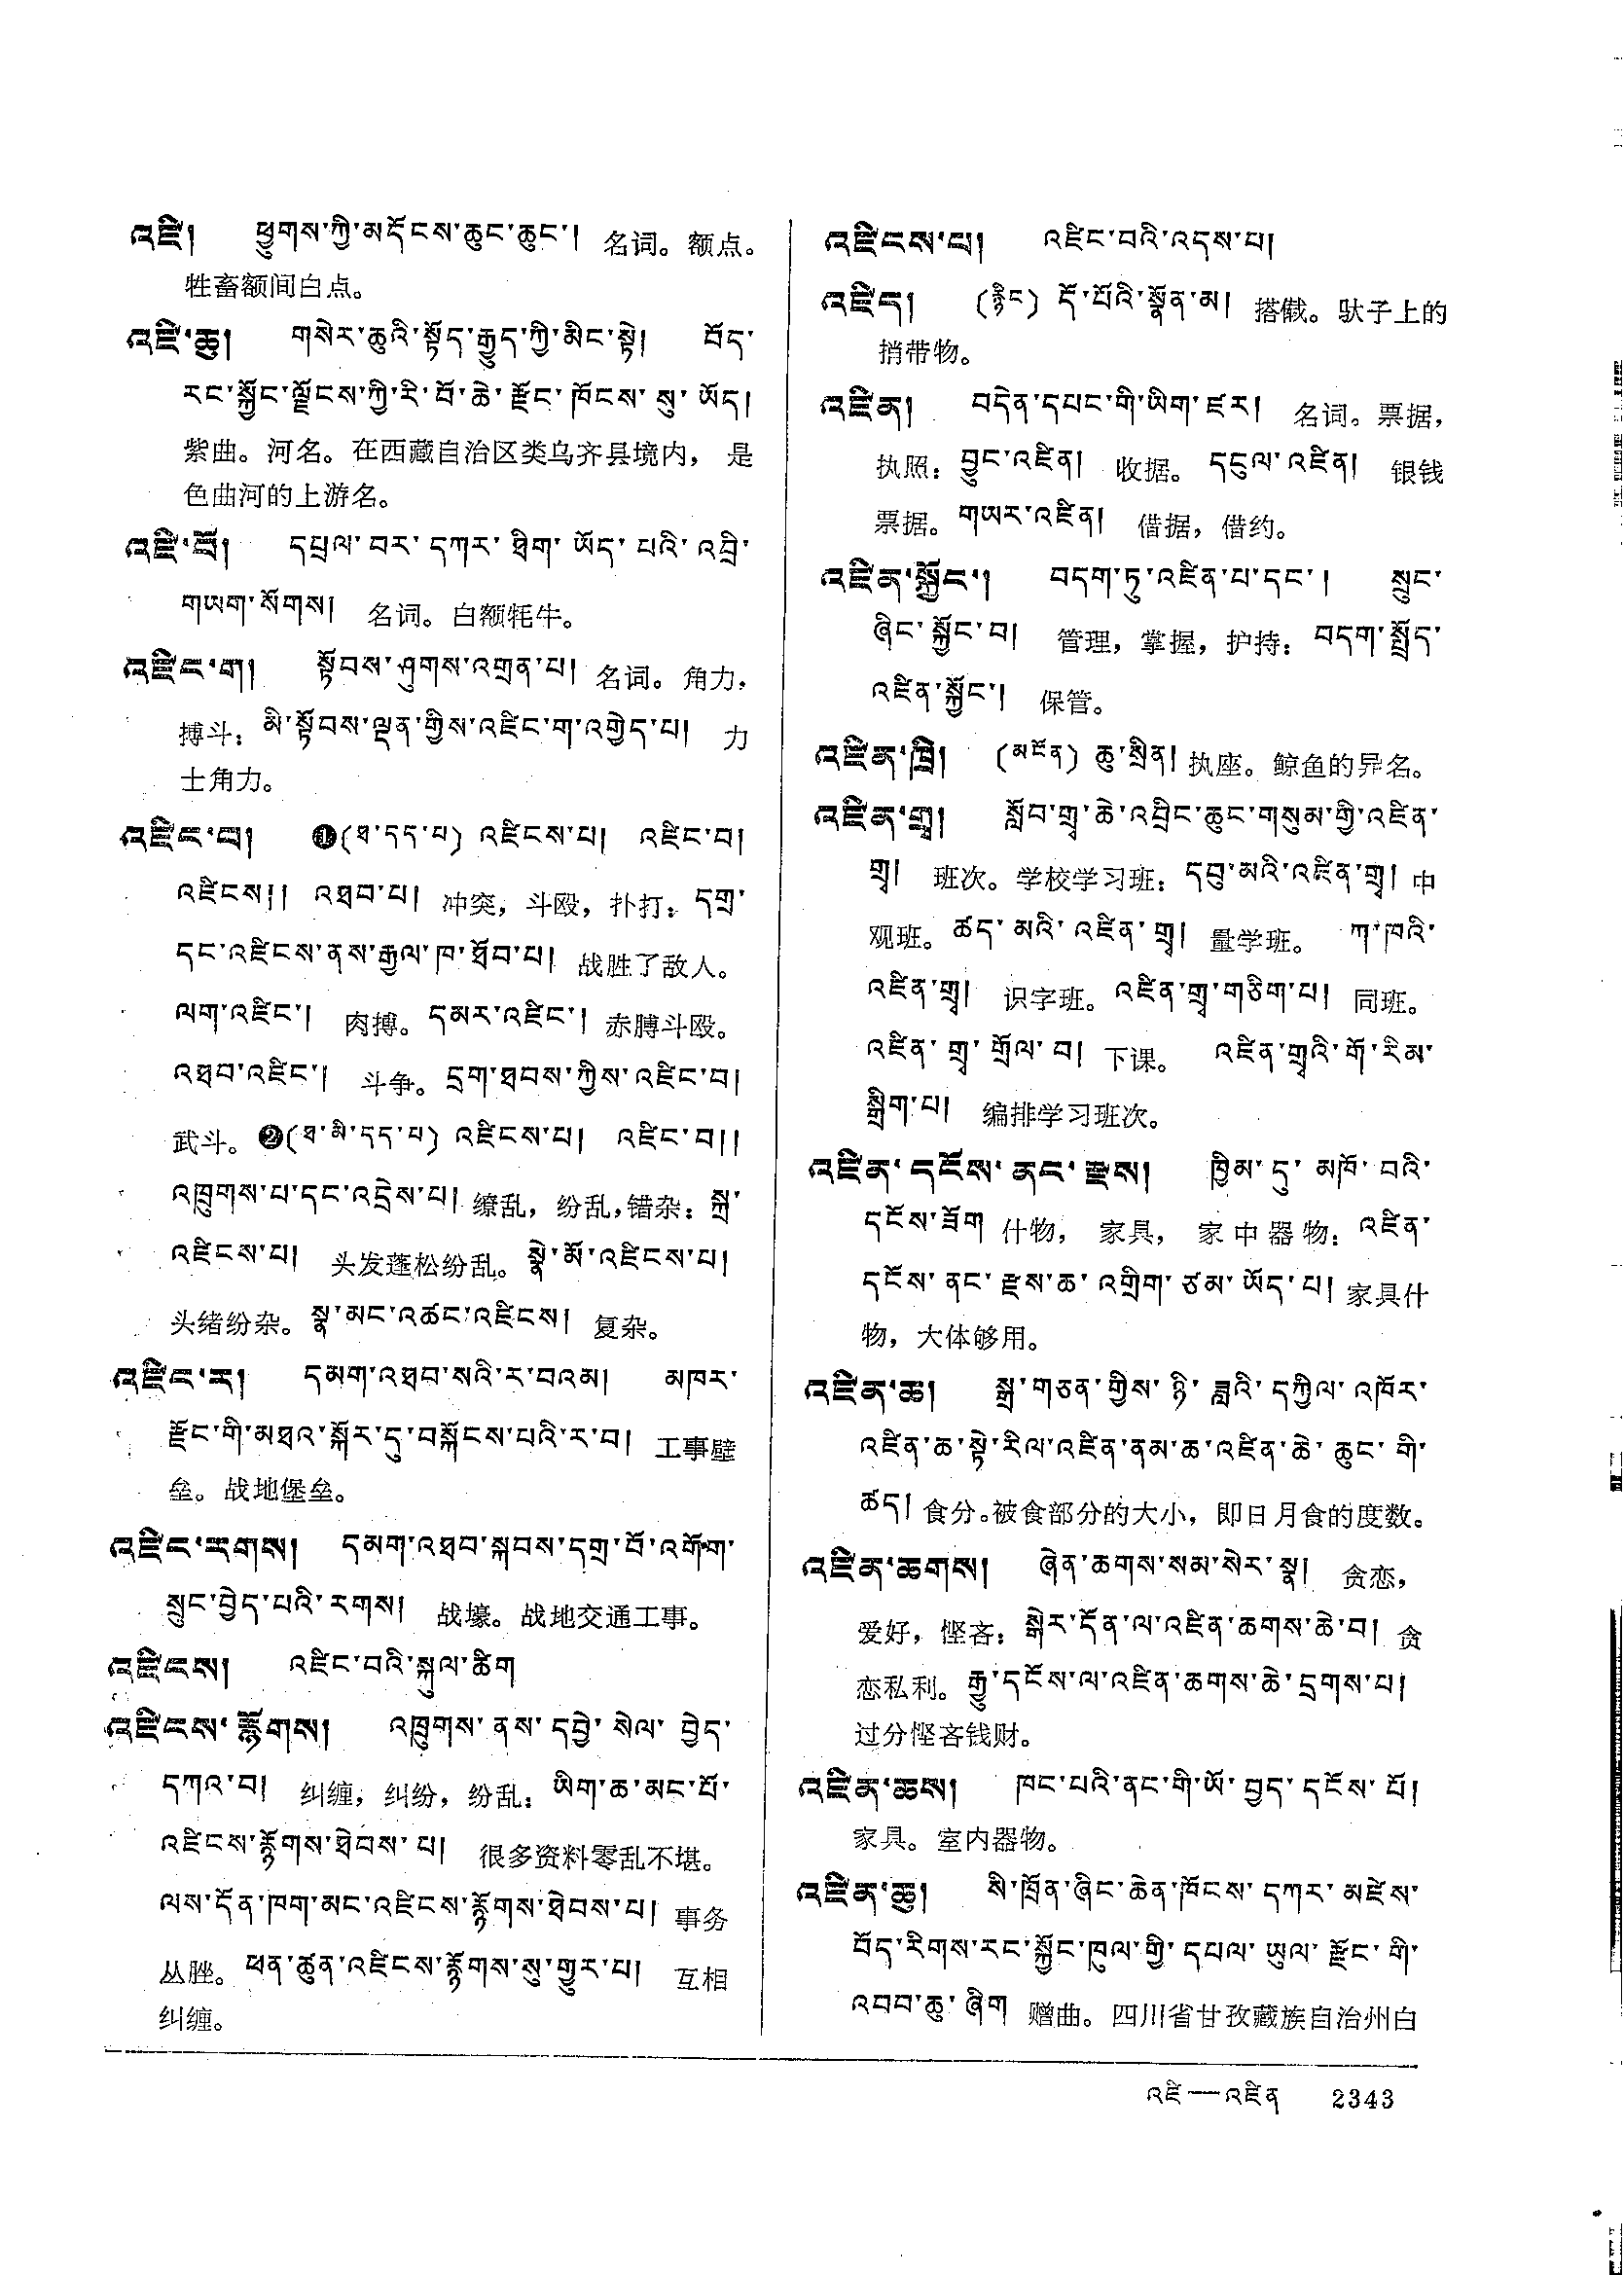 འཛི། ཕྱུགས་ཀྱི་མདོངས་ཆུང་ཆུང་། 名词。额点。
牲畜额间白点。
འཛི་ཆུ། གསེར་ཆུའི་སྟོད་རྒྱུད་ཀྱི་མིང་སྟེ། བོད་
རང་སྐྱོང་ལྗོངས་ཀྱི་རི་བོ་ཆེ་རྫོང་ཁོངས་སུ་ཡོད།
紫曲。河名。在西藏自治区类乌齐县境内，是
色曲河的上游名。
འཛི་པོ། དཔྲལ་བར་དཀར་ཐིག་ཡོད་པའི་འབྲི་
གཡག་སོགས། 名词。白额牦牛。
འཛིང་ག། སྟོབས་ཤུགས་འགྲན་པ། 名词。角力，
搏斗：མི་སྟོབས་ལྡན་གྱིས་འཛིང་ག་འགྱེད་པ། 力
士角力。
འཛིང་བ། ❶(ཐ་དད་པ) འཛིངས་པ། འཛིང་བ།
འཛིངས།། འཐབ་པ། 冲突，斗殴，扑打：དགྲ་
དང་འཛིངས་ནས་རྒྱལ་ཁ་ཐོབ་པ། 战胜了敌人。
ལག་འཛིང་། 肉搏。དམར་འཛིང་། 赤膊斗殴。
འཐབ་འཛིང་། 斗争。དྲག་ཐབས་ཀྱིས་འཛིང་བ།
武斗。❷(ཐ་མི་དད་པ) འཛིངས་པ། འཛིང་བ།།
འཁྲུགས་པ་དང་འདྲེས་པ། 缭乱，纷乱，错杂：སྐྲ་
འཛིངས་པ། 头发蓬松纷乱。སྣེ་མོ་འཛིངས་པ།
头绪纷杂。སྣ་མང་འཚང་འཛིངས། 复杂。
འཛིང་ར། དམག་འཐབ་སའི་ར་བའམ། མཁར་
རྫོང་གི་མཐའ་སྐོར་དུ་བསྐོངས་པའི་ར་བ། 工事壁
垒。战地堡垒。
འཛིང་རགས། དམག་འཐབ་སྐབས་དགྲ་བོ་འགོག་
སྲུང་བྱེད་པའི་རགས། 战壕。战地交通工事。
འཛིངས། འཛིང་བའི་སྐུལ་ཚིག
འཛིངས་རྙོགས། འཁྲུགས་ནས་དབྱེ་སེལ་བྱེད་
དཀའ་བ། 纠缠，纠纷，纷乱：ཡིག་ཆ་མང་པོ་
འཛིངས་རྙོགས་ཐེབས་པ། 很多资料零乱不堪。
ལས་དོན་ཁག་མང་འཛིངས་རྙོགས་ཐེབས་པ། 事务
丛脞。ཕན་ཚུན་འཛིངས་རྙོགས་སུ་གྱུར་པ། 互相
纠缠。
འཛིངས་པ། འཛིང་བའི་འདས་པ།
འཛིད། (རྙིང) དོ་པོའི་སྣོན་མ། 搭戤。驮子上的
捎带物。
འཛིན། བདེན་དཔང་གི་ཡིག་ཛར། 名词。票据，
执照：བྱུང་འཛིན། 收据。དངུལ་འཛིན། 银钱
票据。གཡར་འཛིན། 借据，借约。
འཛིན་སྐྱོང་། བདག་ཏུ་འཛིན་པ་དང་། སྲུང་
ཞིང་སྐྱོང་བ། 管理，掌握，护持：བདག་སྤྲོད་
འཛིན་སྐྱོང་། 保管。
འཛིན་ཁྲི། (མངོན) ཆུ་སྲིན། 执座。鲸鱼的异名。
འཛིན་གྲྭ། སློབ་གྲྭ་ཆེ་འབྲིང་ཆུང་གསུམ་གྱི་འཛིན་
གྲྭ། 班次。学校学习班：དབུ་མའི་འཛིན་གྲྭ། 中
观班。ཚད་མའི་འཛིན་གྲྭ། 量学班。ཀ་ཁའི་
འཛིན་གྲྭ། 识字班。འཛིན་གྲྭ་གཅིག་པ། 同班。
འཛིན་གྲྭ་གྲོལ་བ། 下课。འཛིན་གྲྭའི་གོ་རིམ་
སྒྲིག་པ། 编排学习班次。
འཛིན་དངོས་ནང་རྫས། ཁྱིམ་དུ་མཁོ་བའི་
དངོས་ཟོག 什物，家具，家中器物：འཛིན་
དངོས་ནང་རྫས་ཆ་འགྲིག་ཙམ་ཡོད་པ། 家具什
物，大体够用。
འཛིན་ཆ། སྒྲ་གཅན་གྱིས་ཉི་ཟླའི་དཀྱིལ་འཁོར་
འཛིན་ཆ་སྟེ་རིལ་འཛིན་ནམ་ཆ་འཛིན་ཆེ་ཆུང་གི་
ཚད། 食分。被食部分的大小，即日月食的度数。
འཛིན་ཆགས། ཞེན་ཆགས་སམ་སེར་སྣ། 贪恋，
爱好，悭吝：སྒེར་དོན་ལ་འཛིན་ཆགས་ཆེ་བ། 贪
恋私利。རྒྱུ་དངོས་ལ་འཛིན་ཆགས་ཆེ་དྲགས་པ།
过分悭吝钱财。
འཛིན་ཆས། ཁང་པའི་ནང་གི་ཡོ་བྱད་དངོས་པོ།
家具。室内器物。
འཛིན་ཆུ། སི་ཁྲོན་ཞིང་ཆེན་ཁོངས་དཀར་མཛེས་
བོད་རིགས་རང་སྐྱོང་ཁུལ་གྱི་དཔལ་ཡུལ་རྫོང་གི་
འབབ་ཆུ་ཞིག 赠曲。四川省甘孜藏族自治州白
འཛི—འཛིན 2343